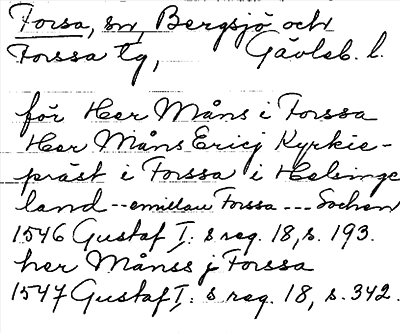 Forsa, sn, Bergsjö och
Forssa tg, Gävleb. l.
för Her Måns i Forssa
Her Måns Ericj Kyrkie-
präst i Forssa i Helsinge
land -- emillan Forssa --- Sochen
1546 Gustaf I: s reg. 18, s. 193.
her Månss j Forssa
1547 Gustaf I: s reg. 18, s. 342.